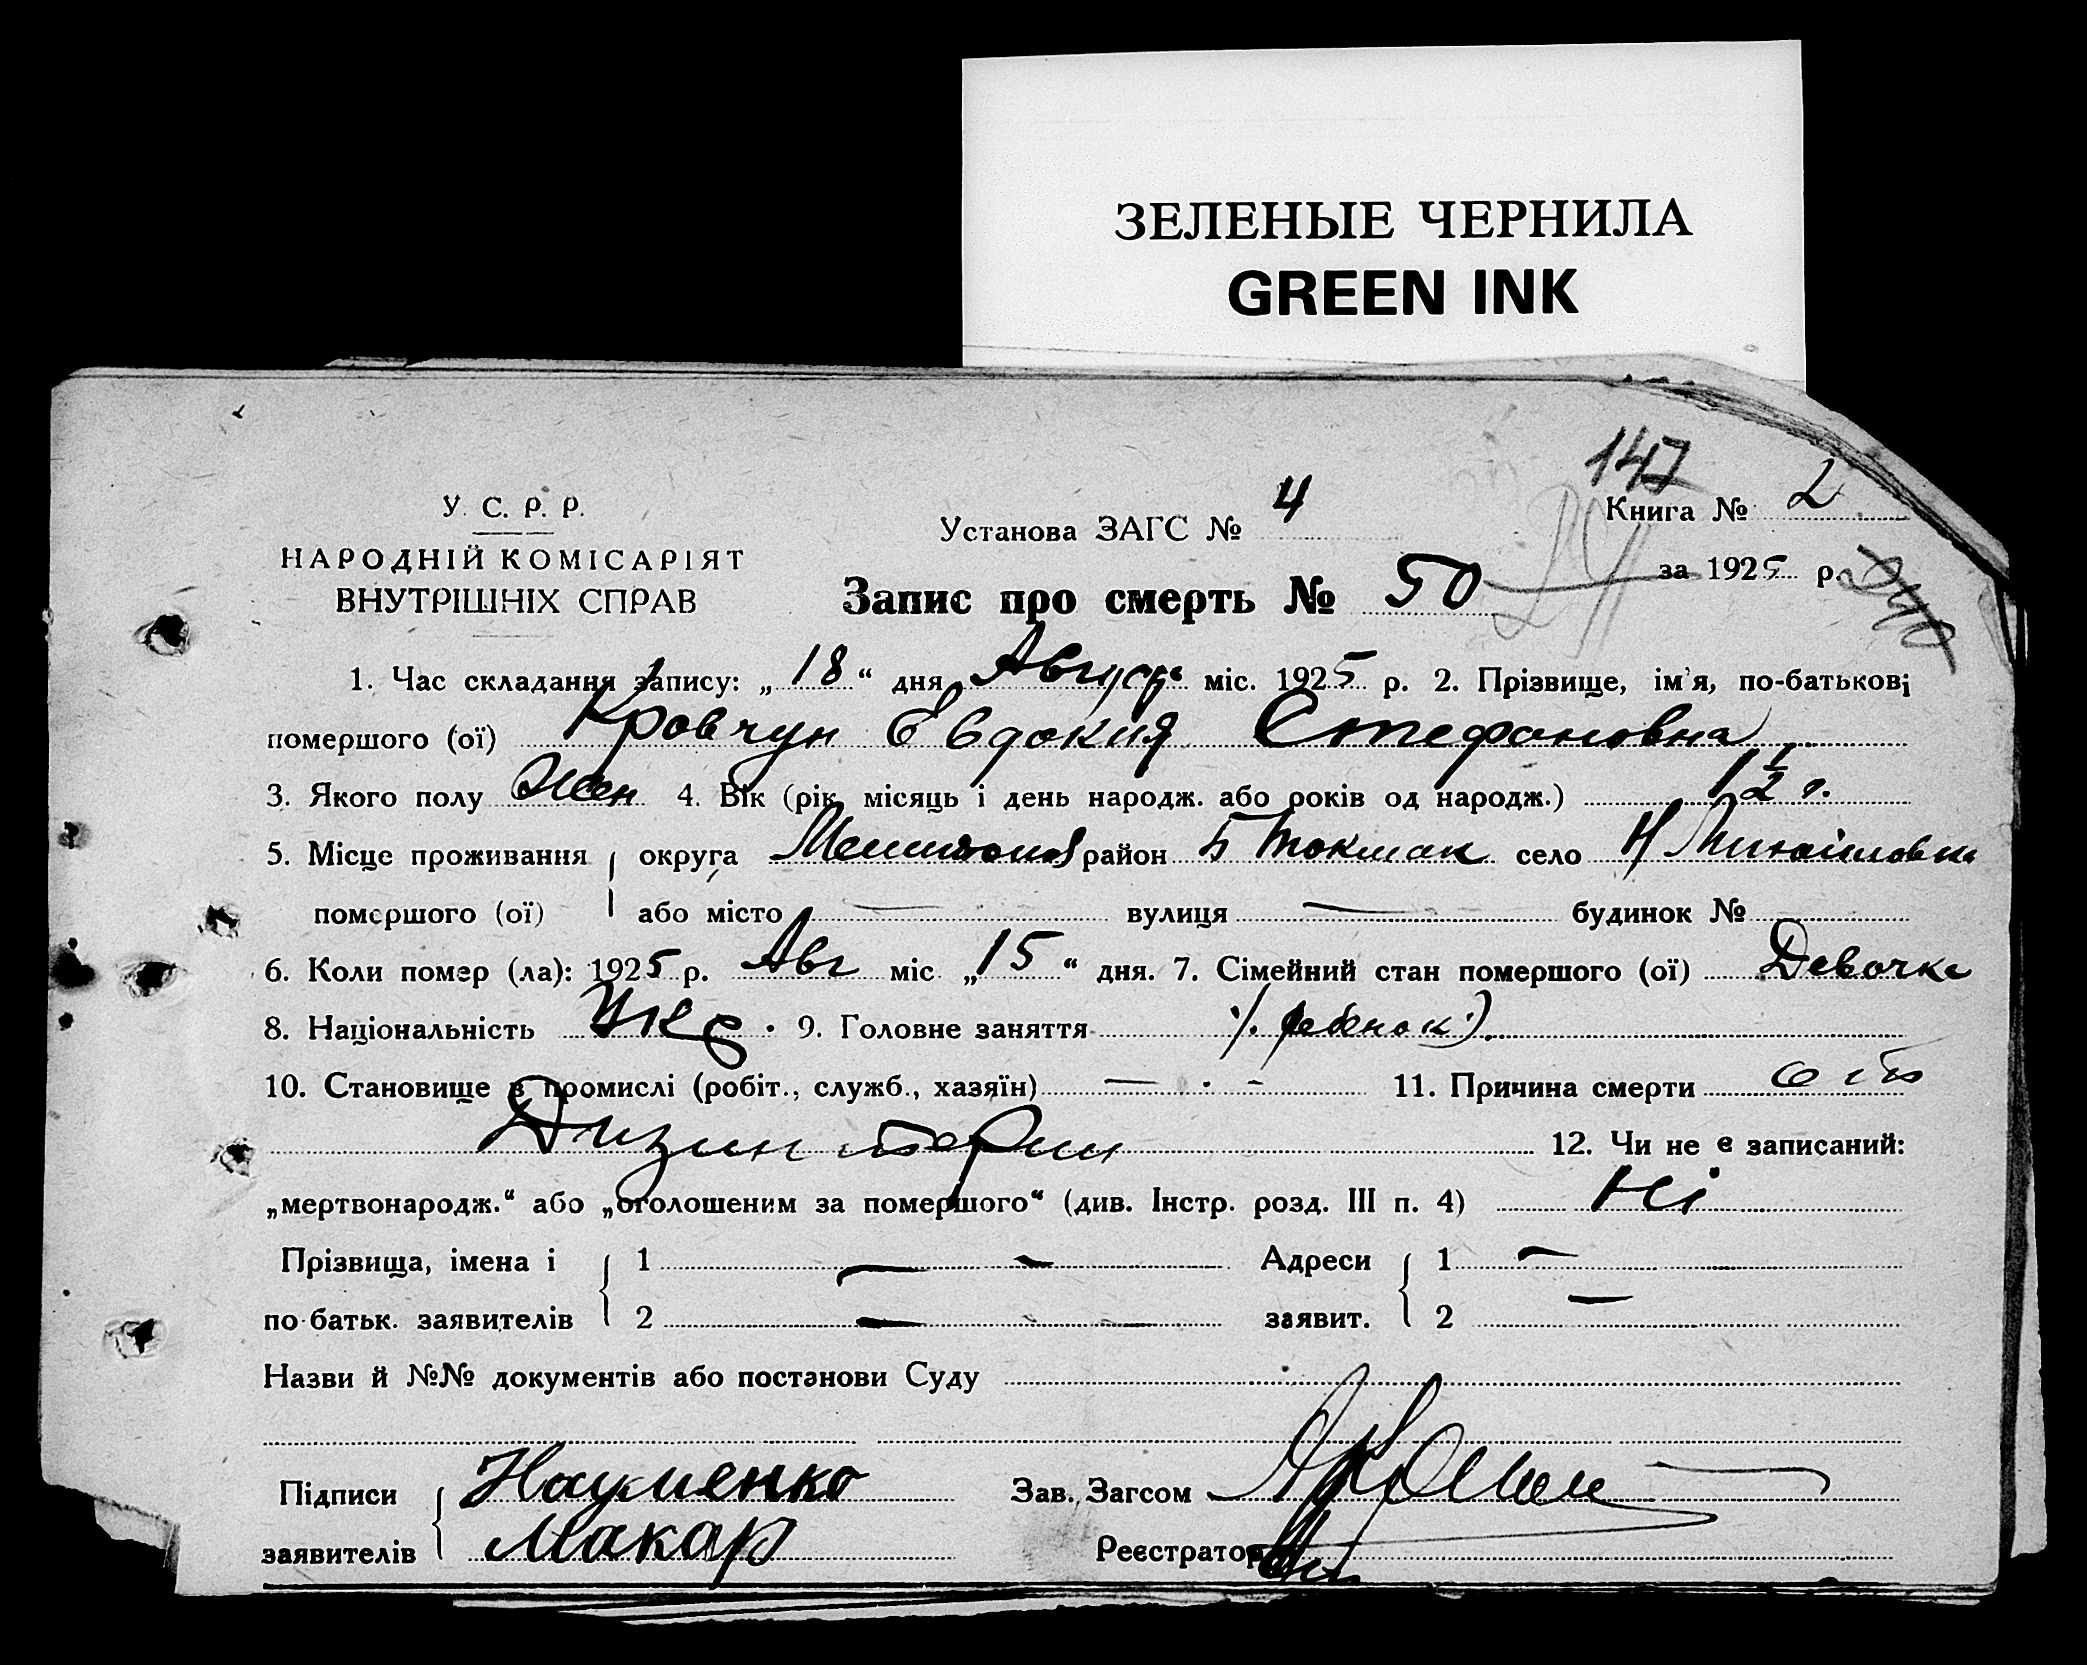 ЗЕЛЕНЫЕ ЧЕРНИЛА
GREEN INK
147
У. С. Р. Р.
НАРОДНІЙ КОМІСАРІЯТ
ВНУТРІШНІХ СПРАВ
Установа ЗАГС № 4
Книга № 2
за 1925 р.
Запис про смерть № 50
1. Час складання запису: „18“ дня Август міс. 1925 р. 2. Прізвище, ім'я, по-батькові
помершого (ої) Кровчун Евдокия Стефановна
3. Якого полу Жен 4. Вік (рік, місяць і день народж. або років од народж.) 1 1/2 г.
5. Місце проживання округа район Б Токмак село Н Михайловка
помершого (ої) або місто — вулиця — будинок №
6. Коли помер (ла): 1925 р. Авг міс „15“ дня. 7. Сімейний стан помершого (ої) Девочка
8. Національність Укр. 9. Головне заняття (ребенок)
10. Становище в промислі (робіт., служб., хазяїн) — · - 11. Причина смерти от
Дизинтерии 12. Чи не є записаний:
„мертвонародж.“ або „оголошеним за помершого“ (див. Інстр. розд. III п. 4) Ні
Прізвища, імена і 1 — - Адреси 1 —
по батьк. заявителів 2 — - заявит. 2 —
Назви й №№ документів або постанови Суду
Підписи Науменко Зав. Загсом
заявителів Макар Реєстратор